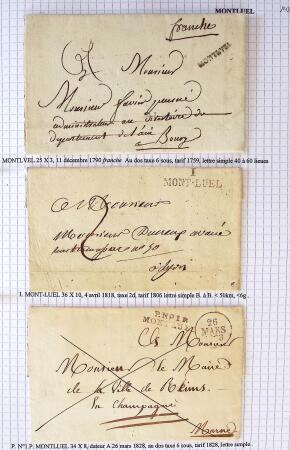 MONTLUEL
franche
MONTLVEL
Monsieur
Monsieur
administrateur au directoire de
département de
à Bourg
MONTLVEL 25 X 3, 11 décembre 1790 franché Au dos taxe 6 sous, tarif 1759, lettre simple 40 à 60 lieues
1
MONT-LUEL
2
Monsieur
Monsieur
à Lyon
1. MONT-LUEL 36 X 10, 4 avril 1818, taxe 2d, tarif 1806 lettre simple B. à B. < 50km, <6g.
P.N°1.P.
MONTLUEL
26
MARS
Monsieur
Monsieur le Maire
de la Ville de Reims
En Champagne
Marne
P. N°1.P. MONTLUEL 34 X 8, dateur A 26 mars 1828, au dos taxe 6 sous, tarif 1828, lettre simple.